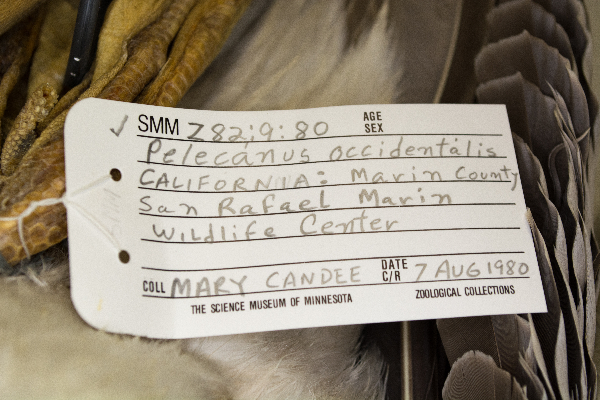 ✓ SMM Z82:9:80 AGE
SEX
Pelecanus occidentalis
CALIFORNIA: Marin County
San Rafael Marin
Wildlife Center
COLL MARY CANDEE DATE C/R 7 AUG 1980
THE SCIENCE MUSEUM OF MINNESOTA ZOOLOGICAL COLLECTIONS